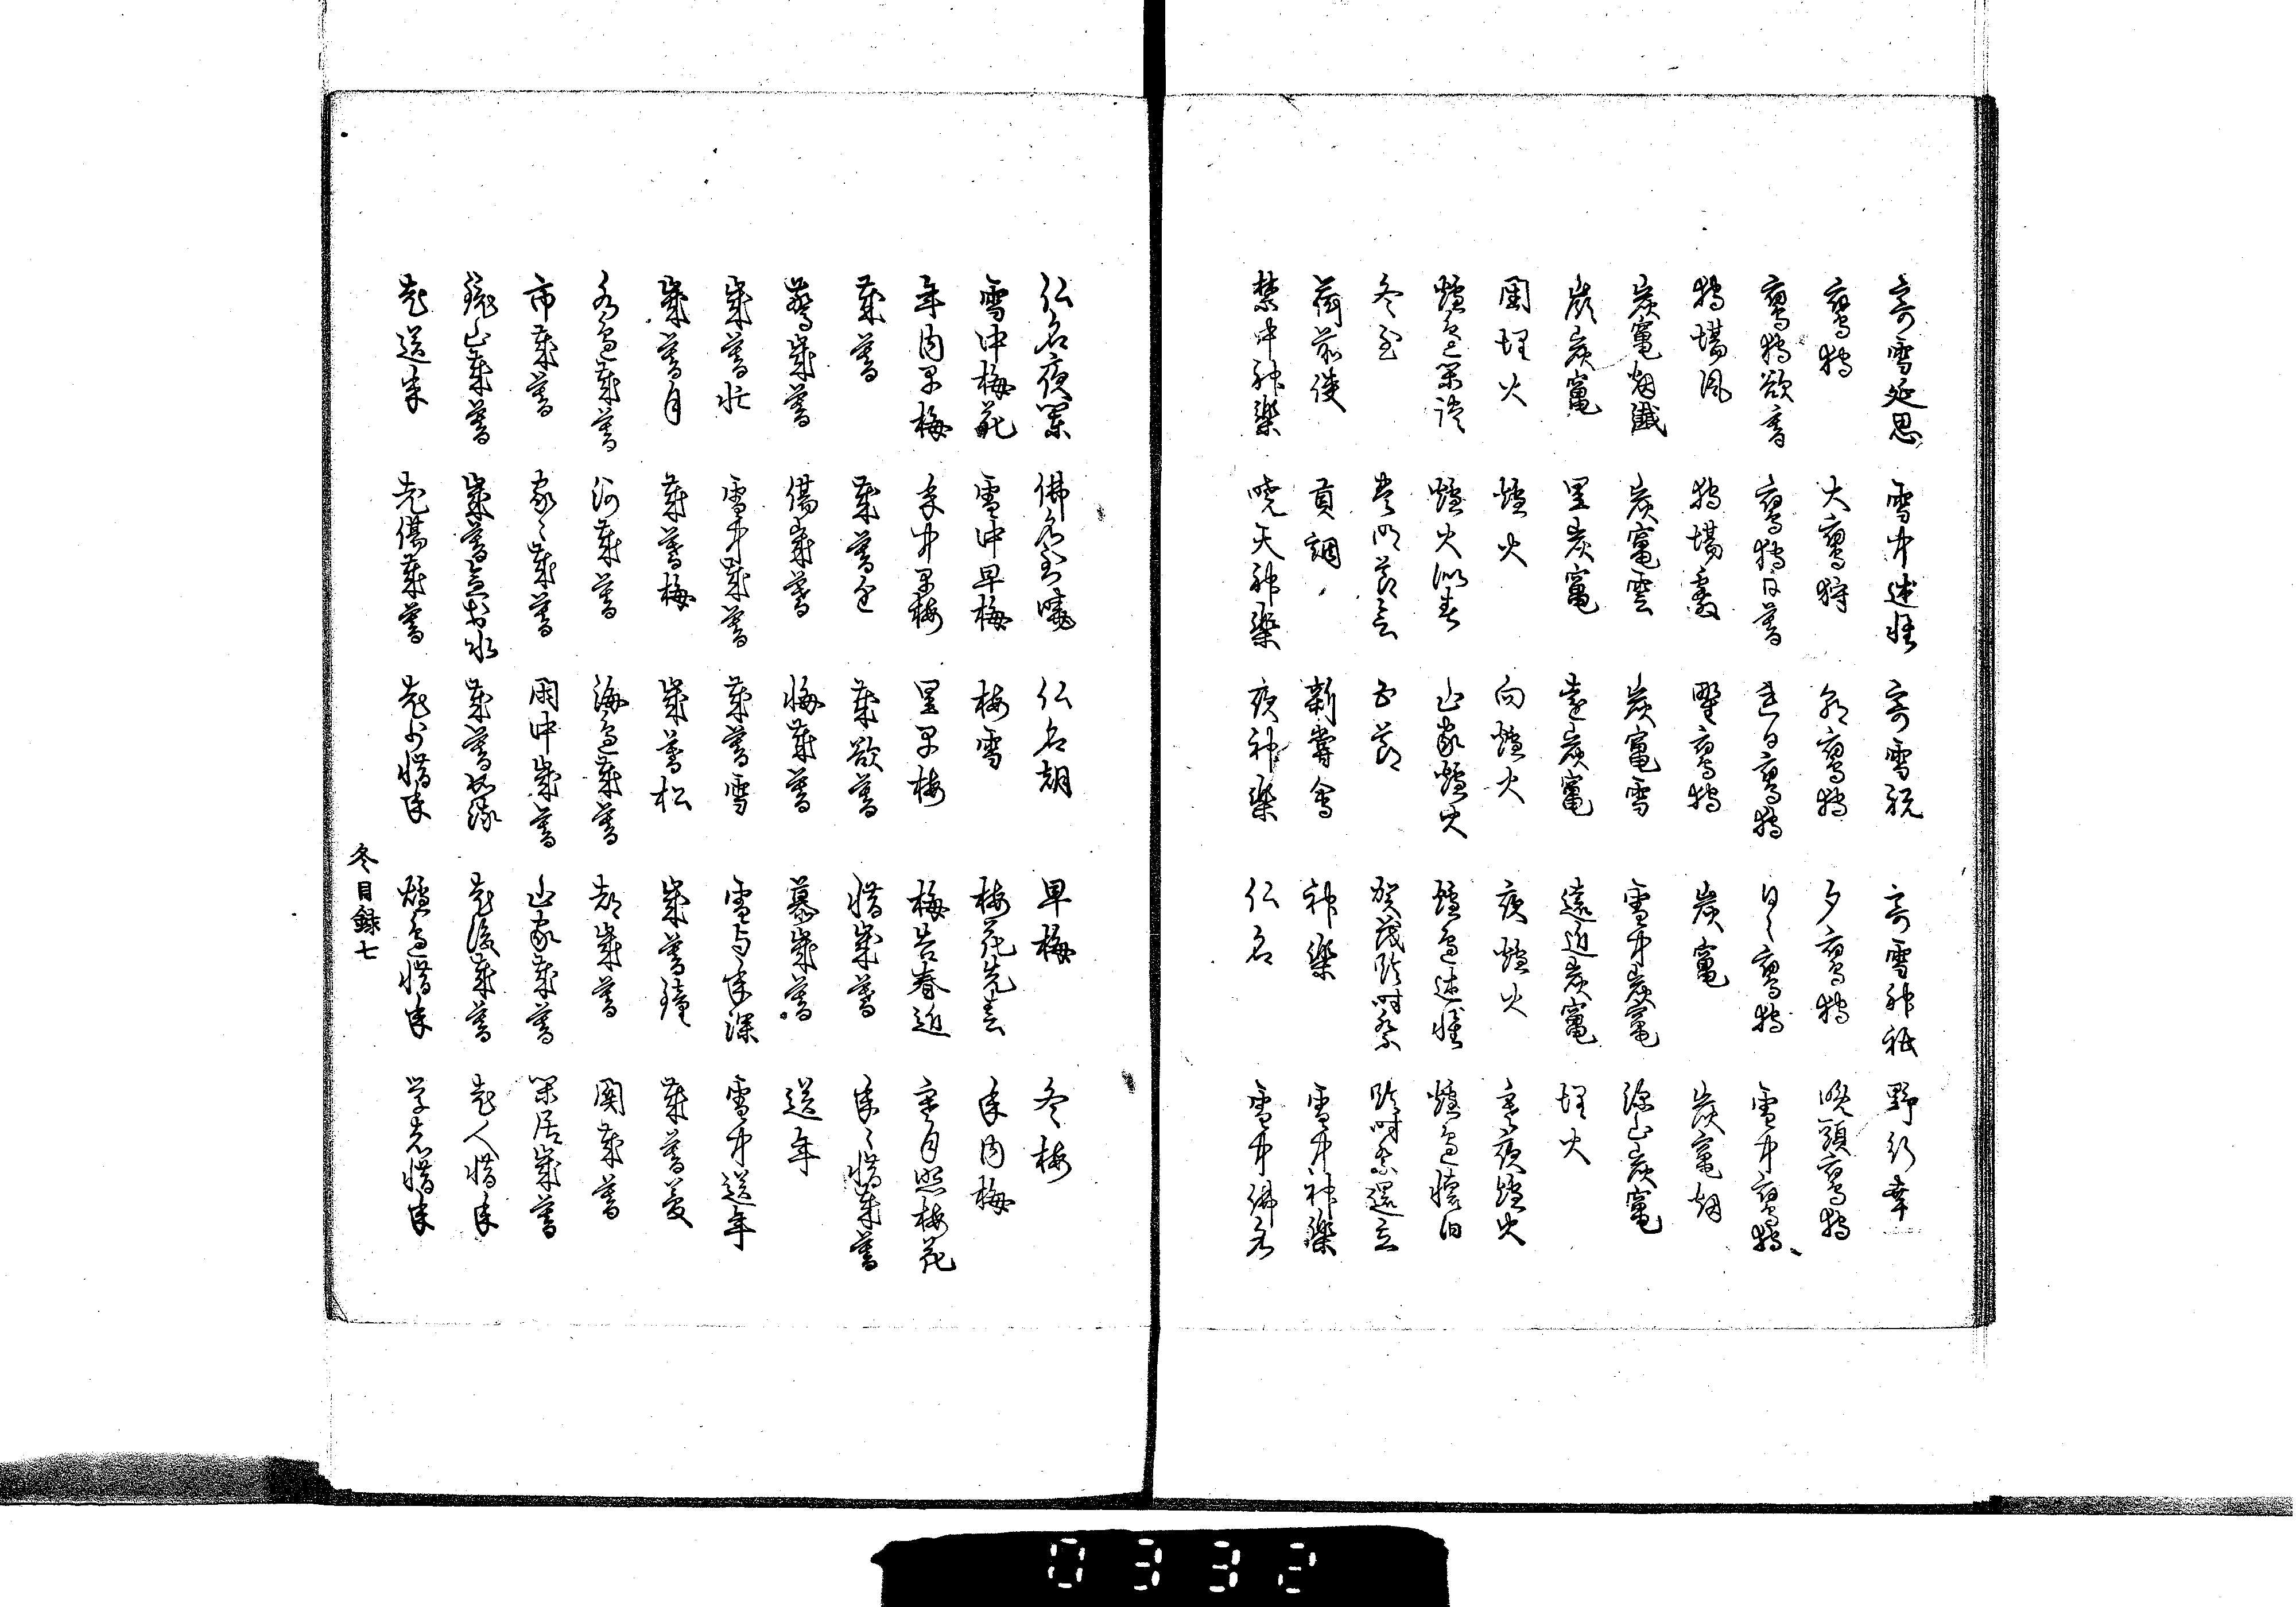 寄雪延思 雪中述懐 寄雪祝 寄雪神祇 野行幸
鷹狩 大鷹狩 朝鷹狩 夕鷹狩 晩頭鷹狩
鷹狩欲昏 鷹狩日暮 連日鷹狩 日〻鷹狩 雪中鷹狩
狩場風 狩場霰 野鷹狩 炭竈 炭竈烟
炭竈烟纖 炭竈雲 炭竈雪 雪中炭竈 深山炭竈
嶺炭竈 里炭竈 遠炭竈 遠近炭竈 埋火
閨埋火 爐火 向爐火 夜爐火 寒夜爐火
爐邊閑談 爐火似春 山家爐火 爐邊述懐 爐邊懐旧
冬至 豊明節会 五節 賀茂臨時祭 臨時祭還立
荷前使 貢調 新嘗會 神樂 雪中神樂
禁中神樂 暁天神樂 夜神樂 仏名 雪中佛名
仏名夜闌 佛名到曉 仏名朝 早梅 冬梅
雪中梅花 雪中早梅 梅雪 梅花先春 年内梅
年内早梅 年中早梅 里早梅 梅告春近 寒月照梅花
歳暮 歳暮近 歳欲暮 惜歳暮 年〻惜歳暮
驚歳暮 傷歳暮 悔歳暮 慕歳暮 送年
歳暮忙 雪中歳暮 歳暮雪 雪与年深 雪中送年
歳暮月 歳暮梅 歳暮松 歳暮鐘 歳暮夢
水邊歳暮 河歳暮 海邊歳暮 都歳暮 関歳暮
市歳暮 家〻歳暮 閑中歳暮 山家歳暮 閑居歳暮
歳暮 歳暮 歳暮 老後歳暮 老人惜年
老送年 老催歳暮 老少惜年 爐邊惜年 惜年
冬目録七
0332